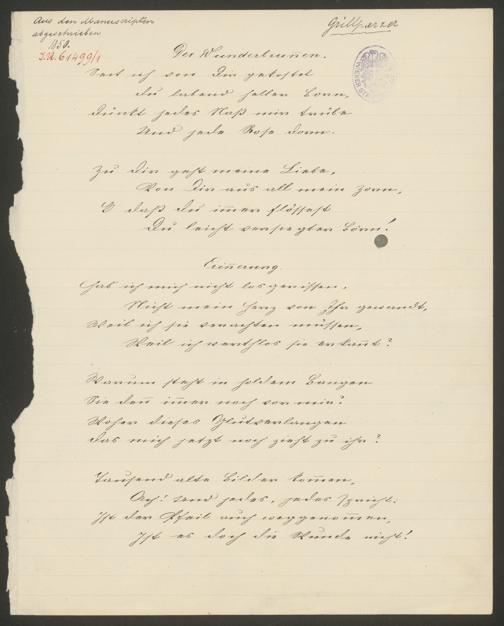 Aus den Manuscripten
abgeschrieben
1850.
I.N. 61499/1
Grillparzer
Der Wunderbrunnen.
Seit ich von Dir gekostet
Du labend heller Born,
Dünkt jedes Naß mir trübe
Und jede Rose Dorn.
Zu Dir geht meine Liebe,
Von Dir aus all mein Zorn,
O daß du im̅er flössest
Du leicht versiegter Born!
Erin̅erung.
Hab ich mich nicht losgerissen,
Nicht mein Herz von Ihr gewandt,
Weil ich sie verachten müssen,
Weil ich werthlos sie erkan̅t?
Warum steht in holdem Bangen
Sie den̅ im̅er noch vor mir?
Woher dieses Glutverlangen
Das mich jetzt noch zieht zu ihr?
Tausend alte Bilder kom̅en,
Ach! Und jedes, jedes spricht:
Ist der Pfeil auch weggenom̅en,
Ist es doch die Wunde nicht!